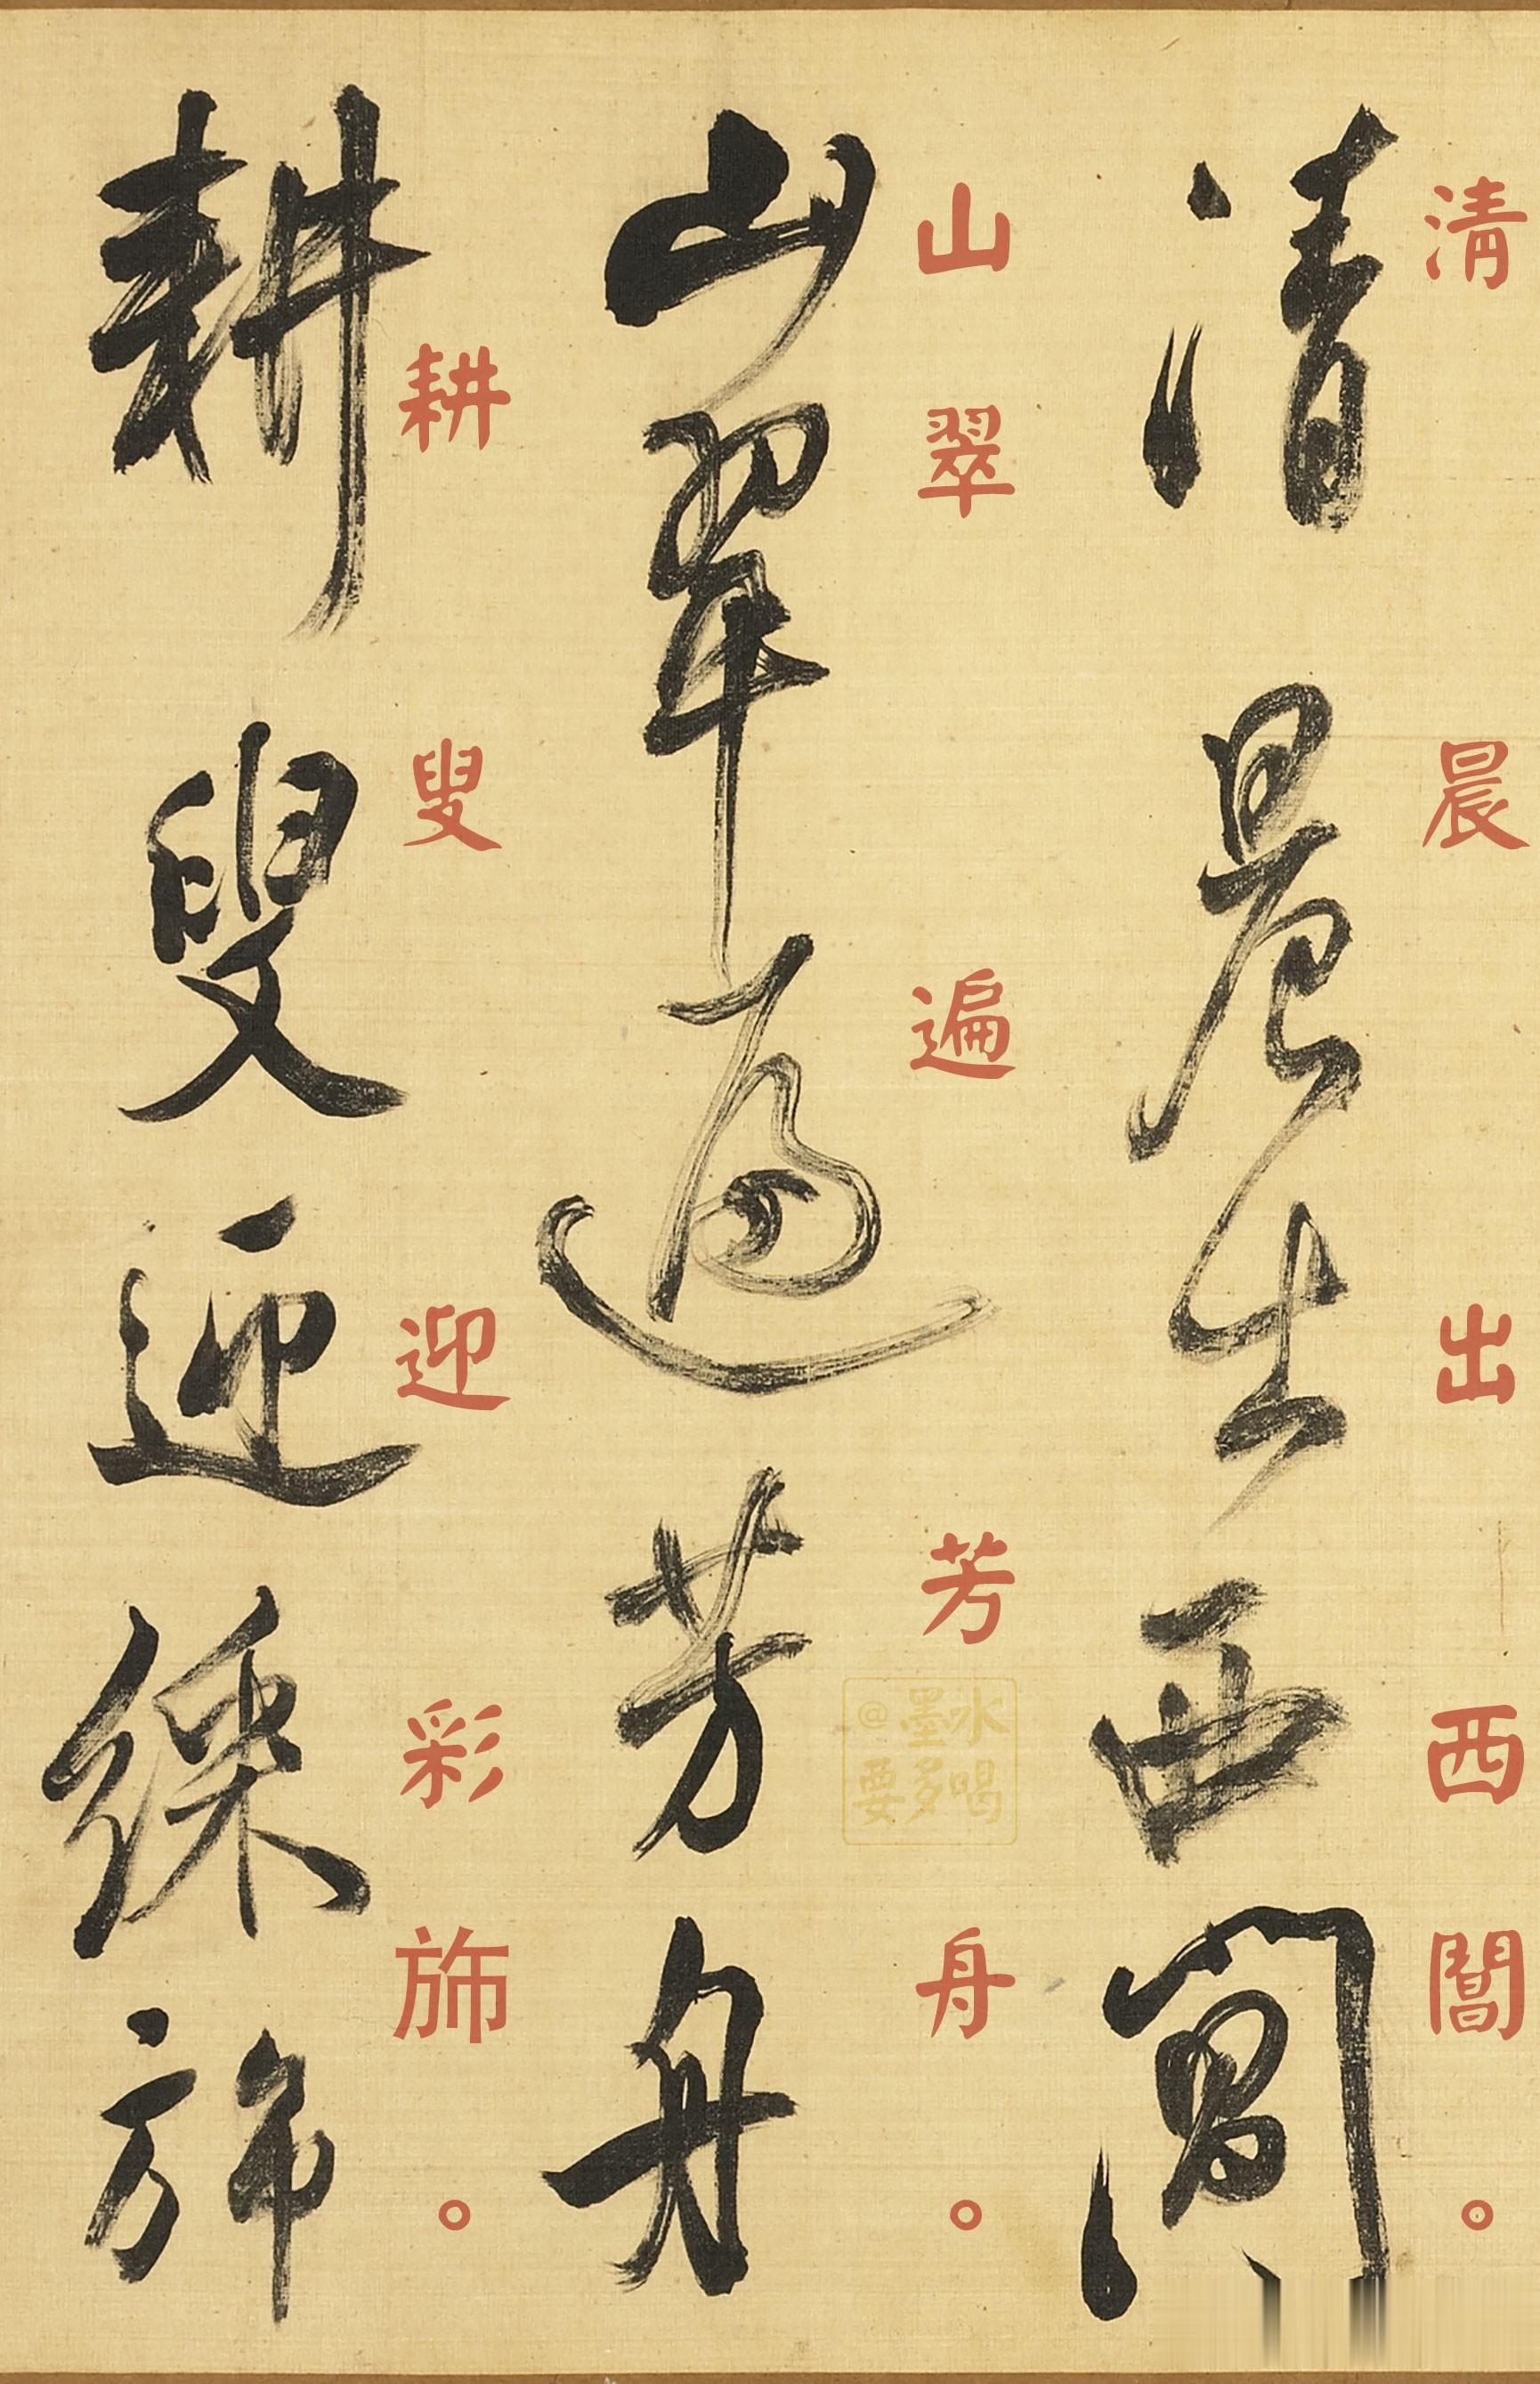 清晨出西闊
清晨出西闊。
山翠遍芳舟
山翠遍芳舟。
耕叟迎綵斾
耕叟迎彩斾。
@水墨喝多要